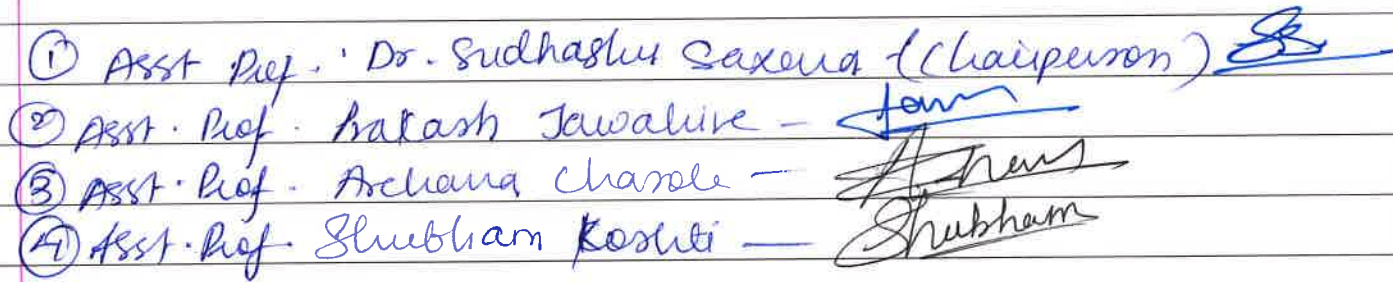 ① Asst Prof. Dr. Sudhashu Saxena (Chairperson)
② Asst. Prof. Prakash Jawahire -
③ Asst. Prof. Archana Chasole -
④ Asst. Prof. Shubham Koshti — Shubham